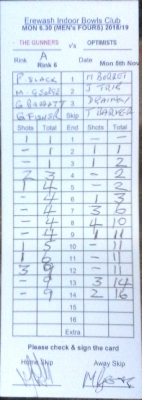 Erewash Indoor Bowls Club
MON 6.30 (MEN'S FOURS) 2018/19
THE GUNNERS v's OPTIMISTS
Rink A Rink 6 Date Mon 5th Nov
P BLACK 1
M. GEORGE 2 J TRIE
G BARRATT 3
G FISHER Skip T BARKER
Shots Total END Shots Total
- - 1 1 1
- 1 2 - 1
- 1 3 1 2
2 3 4 - 2
1 4 5 - 2
- 4 6 1 3
- 4 7 3 6
- 4 8 4 10
- 4 9 1 11
1 5 10 - 11
1 6 11 - 11
3 9 12 - 11
- 9 13 3 14
- 9 14 2 16
15
16
Extra
Please check & sign the card
Home Skip Away Skip